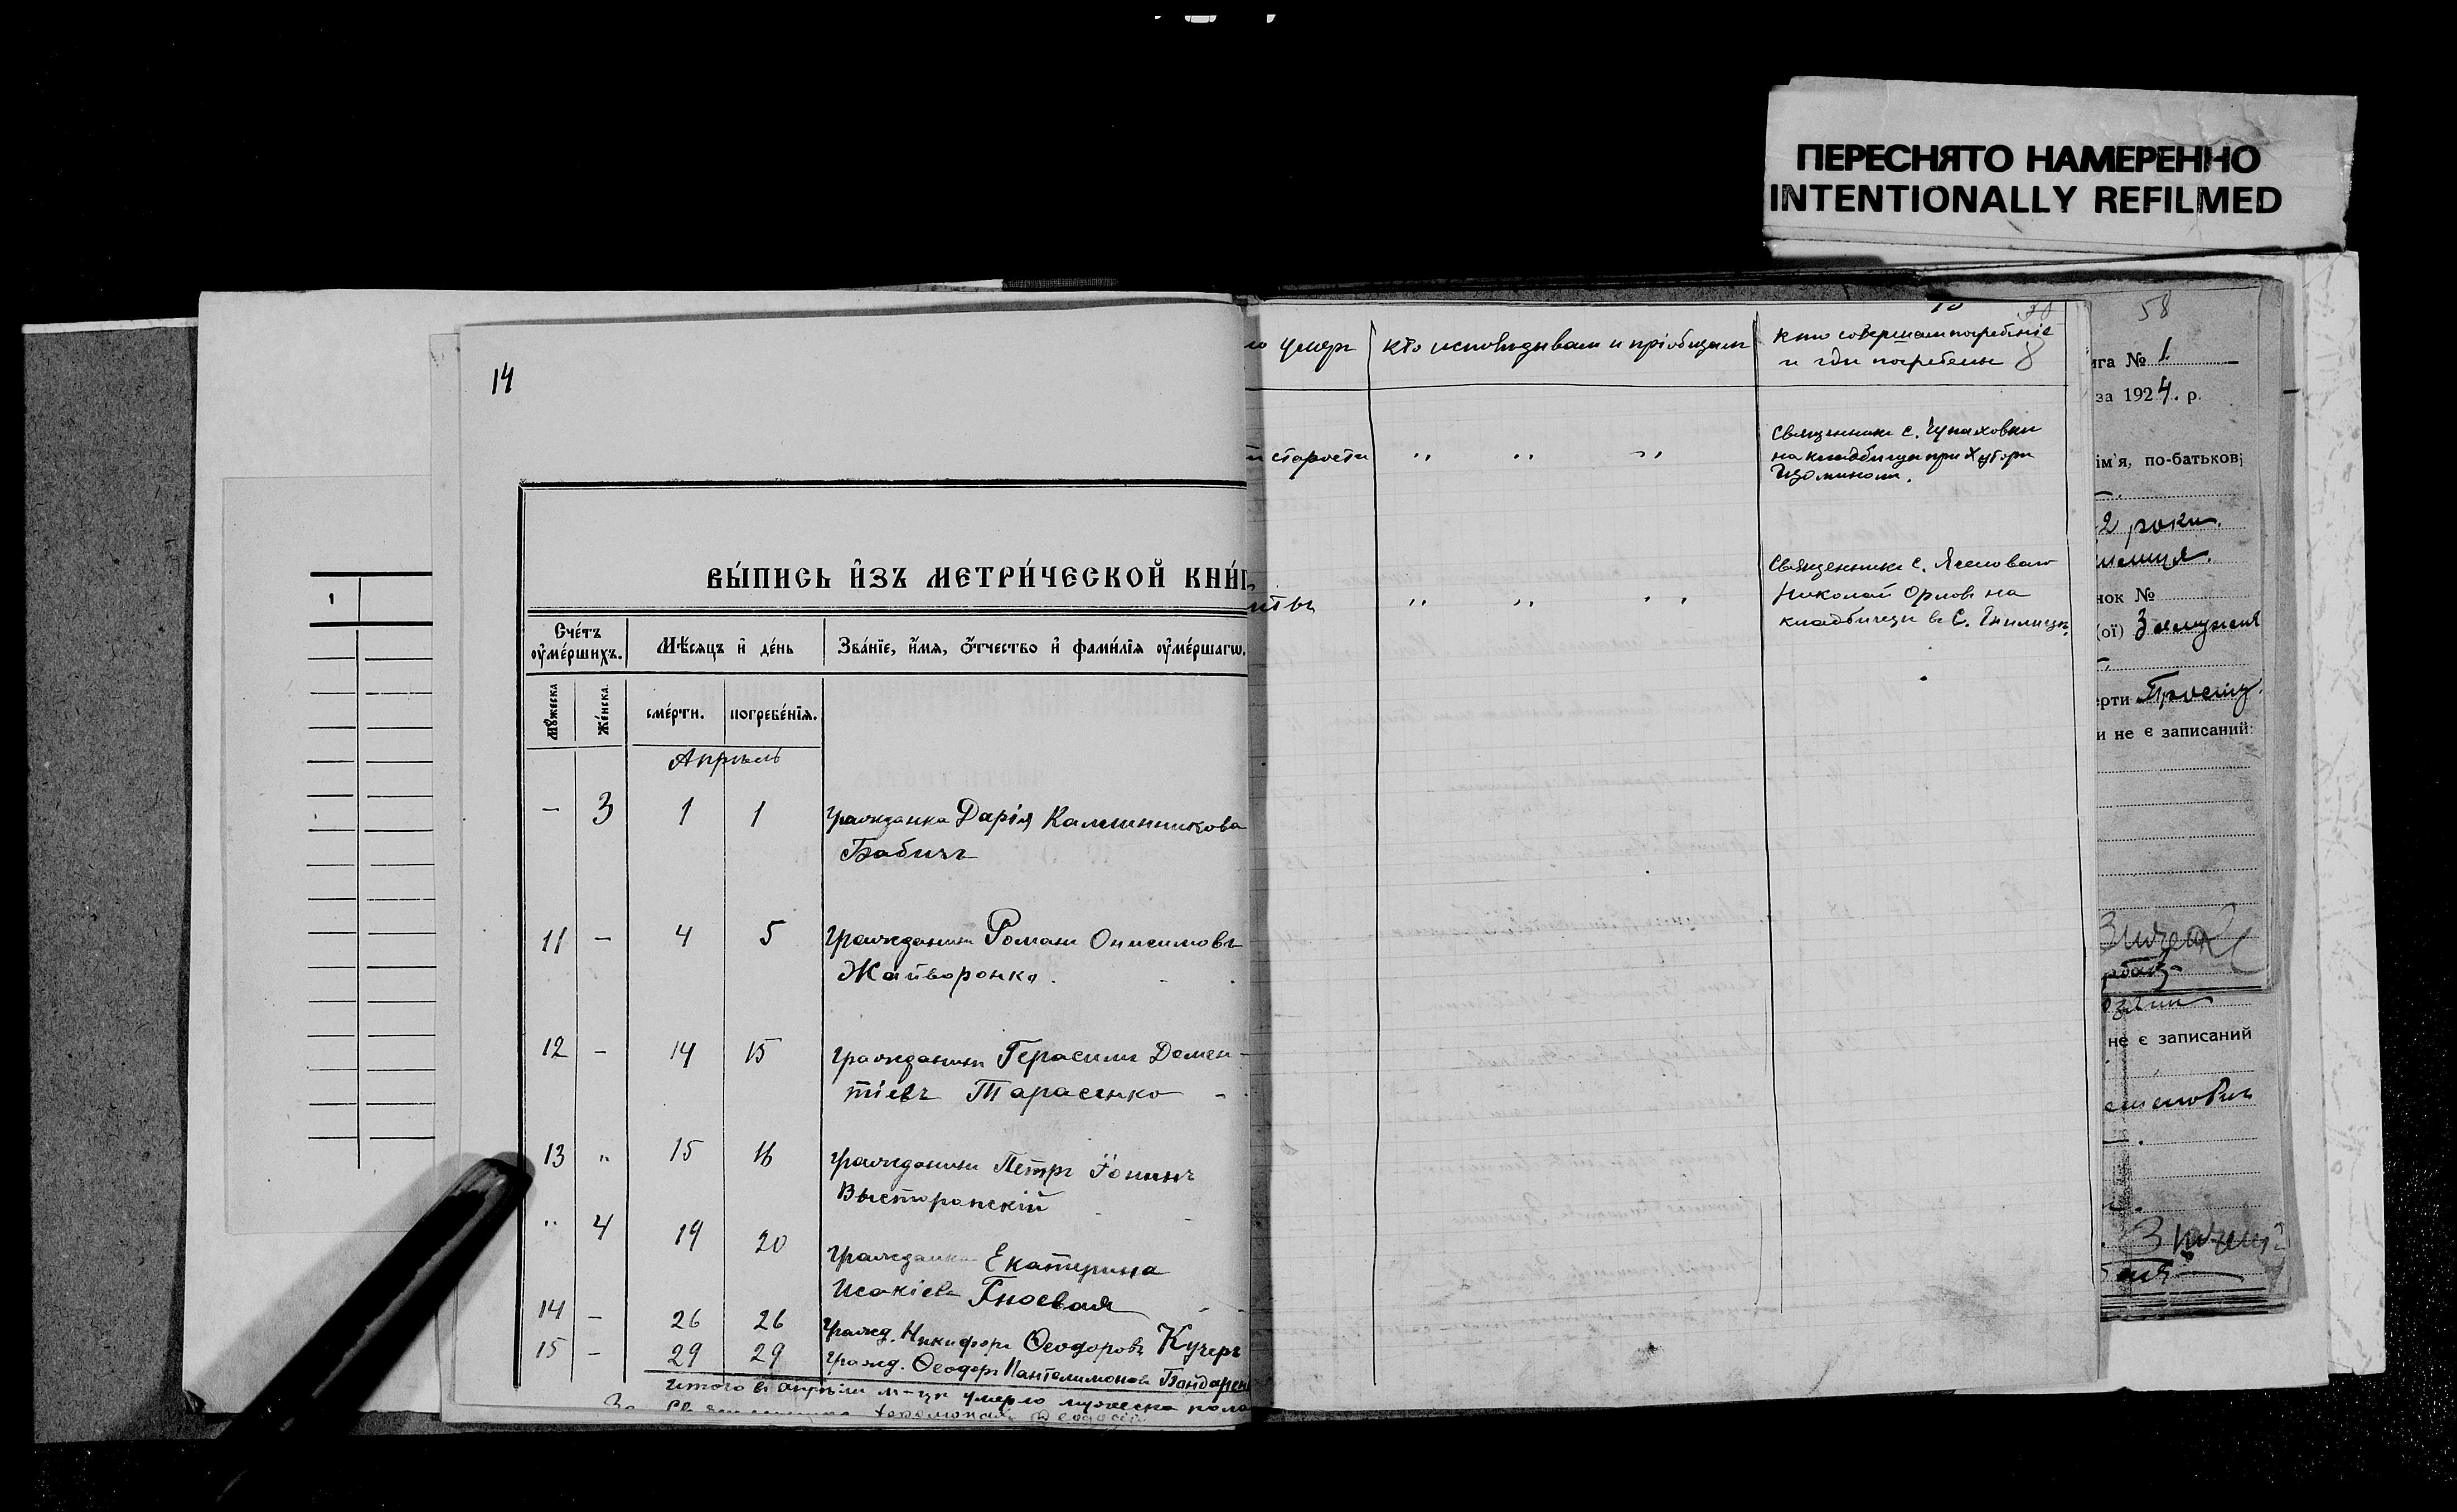 ПЕРЕСНЯТО НАМЕРЕННО
INTENTIONALLY REFILMED
14
ВЫ́ПИСЬ И҆ЗЪ МЕТРИ́ЧЕСКОЙ КНИ́Г
Сче́тъ
оу҆ме́ршихъ.
Мѣ́сяцъ и҆ де́нь
Зва́нїе, и҆́мя, ѻ҆́тчество и҆ фами́лїя оу҆ме́ршагѡ.
Мꙋ́жеска
Же́нска
сме́рти.
погребе́нїя.
Апрѣль
— 3 1 1 Гражданка Дарія Калинникова
Бабичъ
11 — 4 5 Гражданинъ Романъ Онисимовъ
Жайворонко.
12 — 14 15 Гражданинъ Герасимъ Демен-
тіевъ Тарасенко
13 „ 15 16 Гражданинъ Петръ Іонинъ
Высторопскій
„ 4 19 20 Гражданка Екатерина
Исакіева Гноевая
14 — 26 26 Гражд. Никифоръ Ѳеодоровъ Кучеръ
15 — 29 29 Гражд. Ѳеодоръ Пантелимоновъ Бондарен
Итого въ апрѣлѣ м-цѣ умерло мужеска пола
го умеръ
Кто исповѣдывалъ и пріобщалъ
Кто совершалъ погребеніе
и гдѣ погребены
8
старости „ „ „
Священникъ с. Чупаховки
на кладбищѣ при Хуторѣ
„ „ „
Священникъ с. Ясеноваго
Николай Орловъ на
кладбищѣ въ С. Гнилицѣ.
58
ига № 1
за 1924. р.
ім'я, по-батькові
2 роки.
нок №
(ої)
ерти
и не є записаний:
не є записаний
1